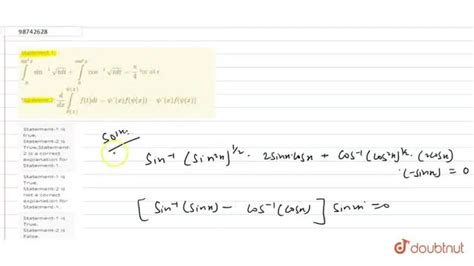 98742628
Statement-1
∫₀^{sin²x} sin⁻¹√t dt + ∫₀^{cos²x} cos⁻¹√t dt = π/4 for all x
d/dx ∫ f(t)dt = ψ'(x)f(ψ(x)) - φ'(x)f(φ(x))
Statement-1 is
true,
Statement-2 is
True,Statement-
2 is a correct
explanation for
Statement-1.
Statement-1 is
True,
Statement-2 is
not a correct
explanation for
Statement-1.
Statement-1 is
True,
Statement-2 is
False.
Solⁿ.
Sin⁻¹ (Sin²x)^{1/2} · 2sinx cosx + cos⁻¹(cos²x)^{½} · (2cosx)
·(-sinx) = 0
[ Sin⁻¹(sinx) - cos⁻¹(cosx) ] sin =0
doubtnut